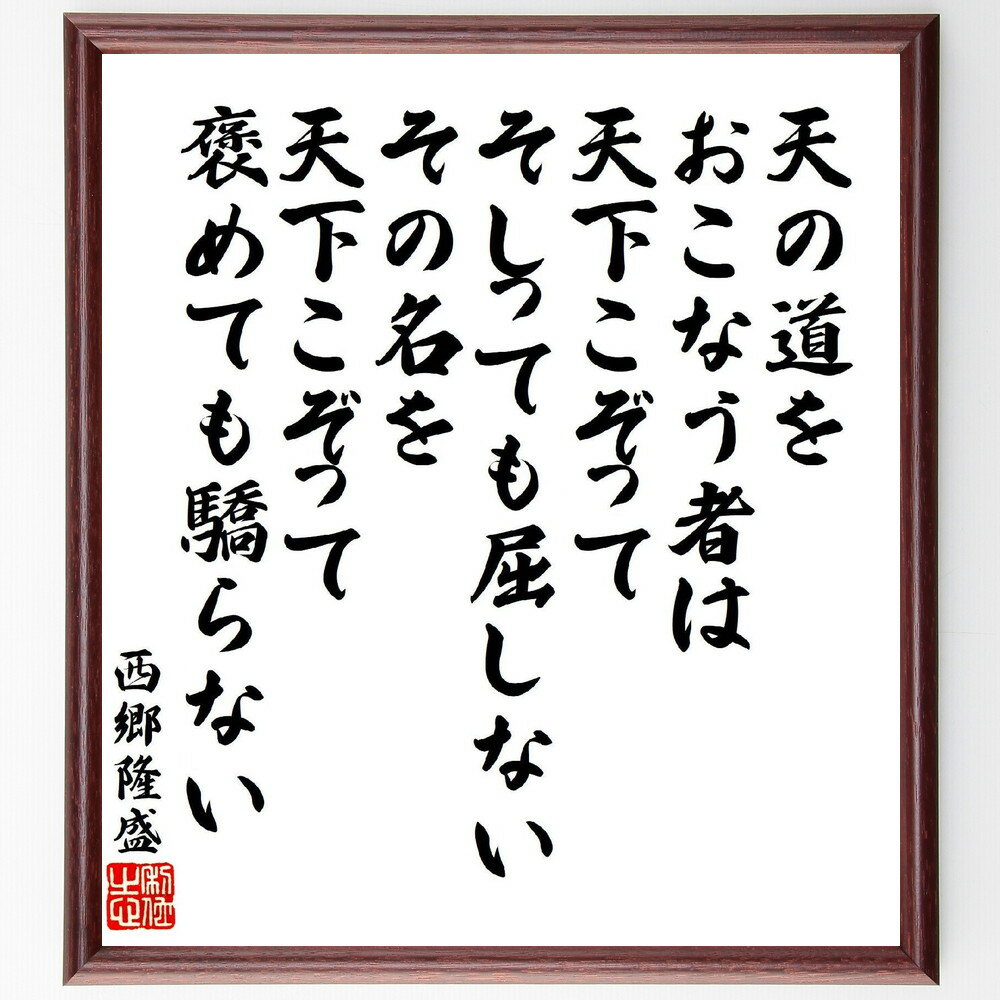 天の道を
おこなう者は
天下こぞって
そしっても屈しない
その名を
天下こぞって
褒めても驕らない
西郷隆盛